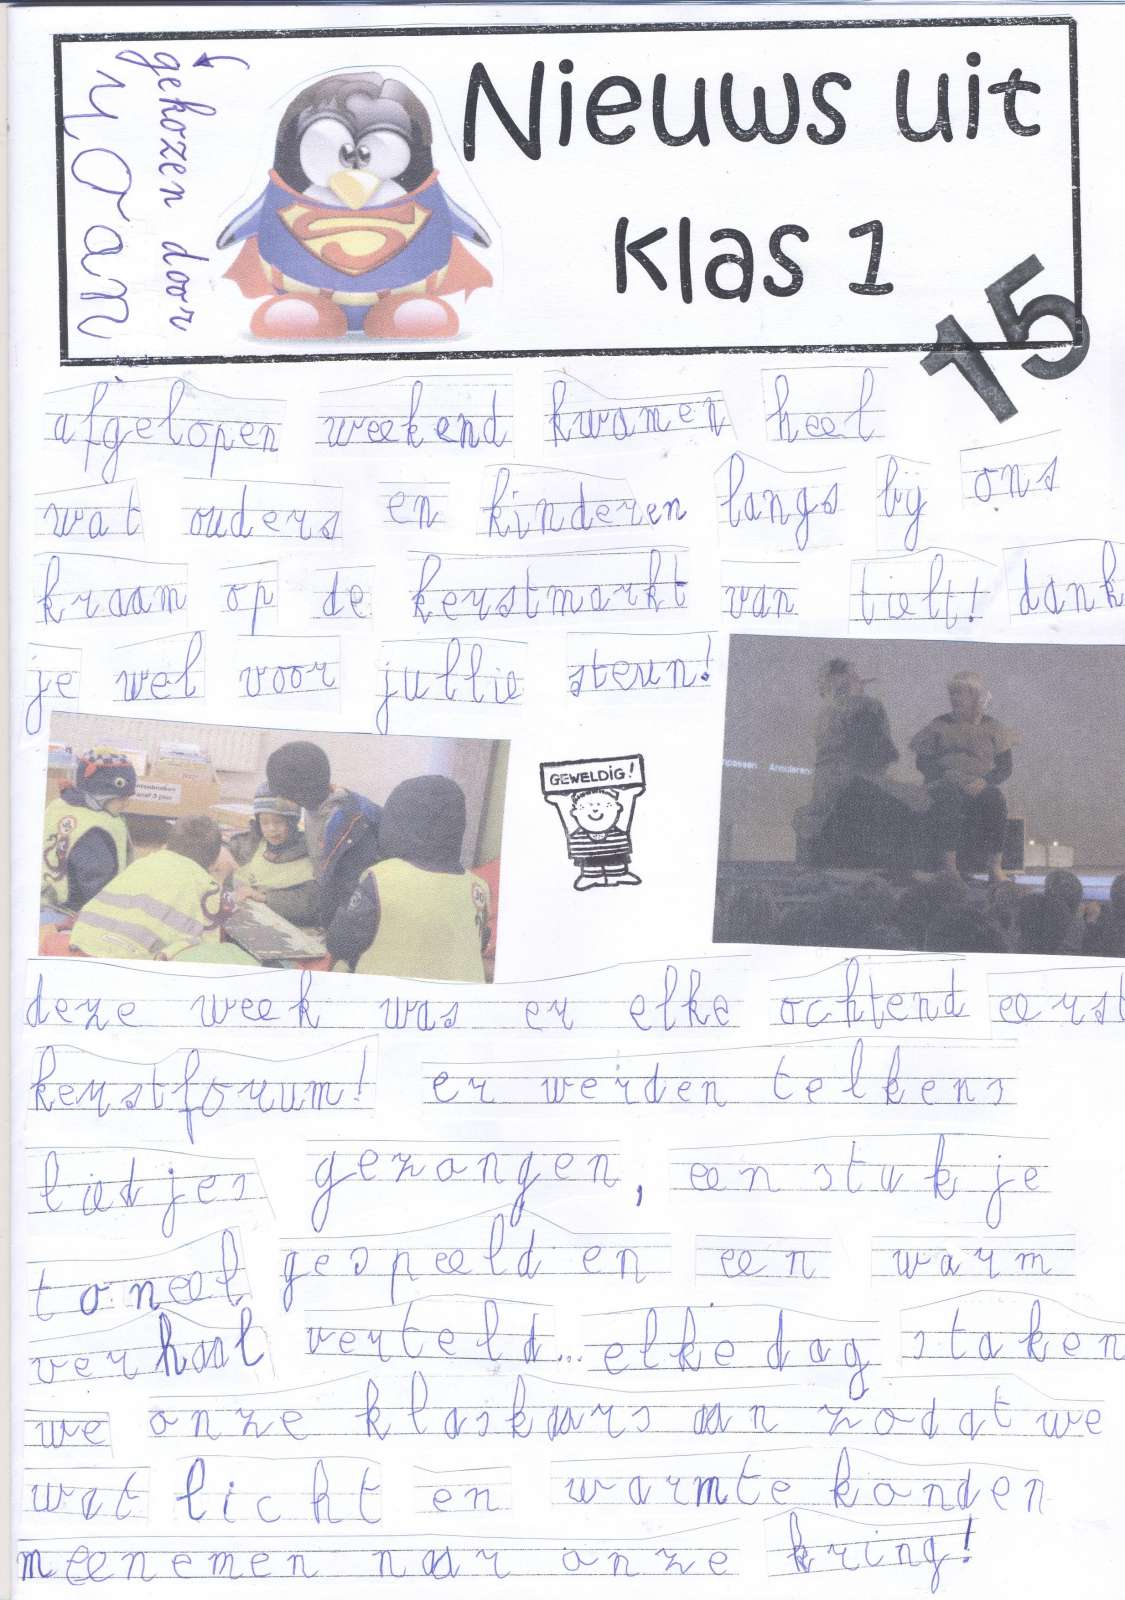 Nieuws uit
klas 1
15
gekozen door
yoan
afgelopen weekend kwamen heel
wat ouders en kinderen langs bij ons
kraam op de kerstmarkt van tielt! dank
je wel voor jullie steun!
GEWELDIG!
deze week was er elke ochtend eerst
kerstforum! er werden telkens
liedjes gezongen, een stukje
toneel gespeeld en een warm
verhaal verteld... elke dag staken
we onze klaskaars aan zodat we
wat licht en warmte konden
meenemen naar onze kring!